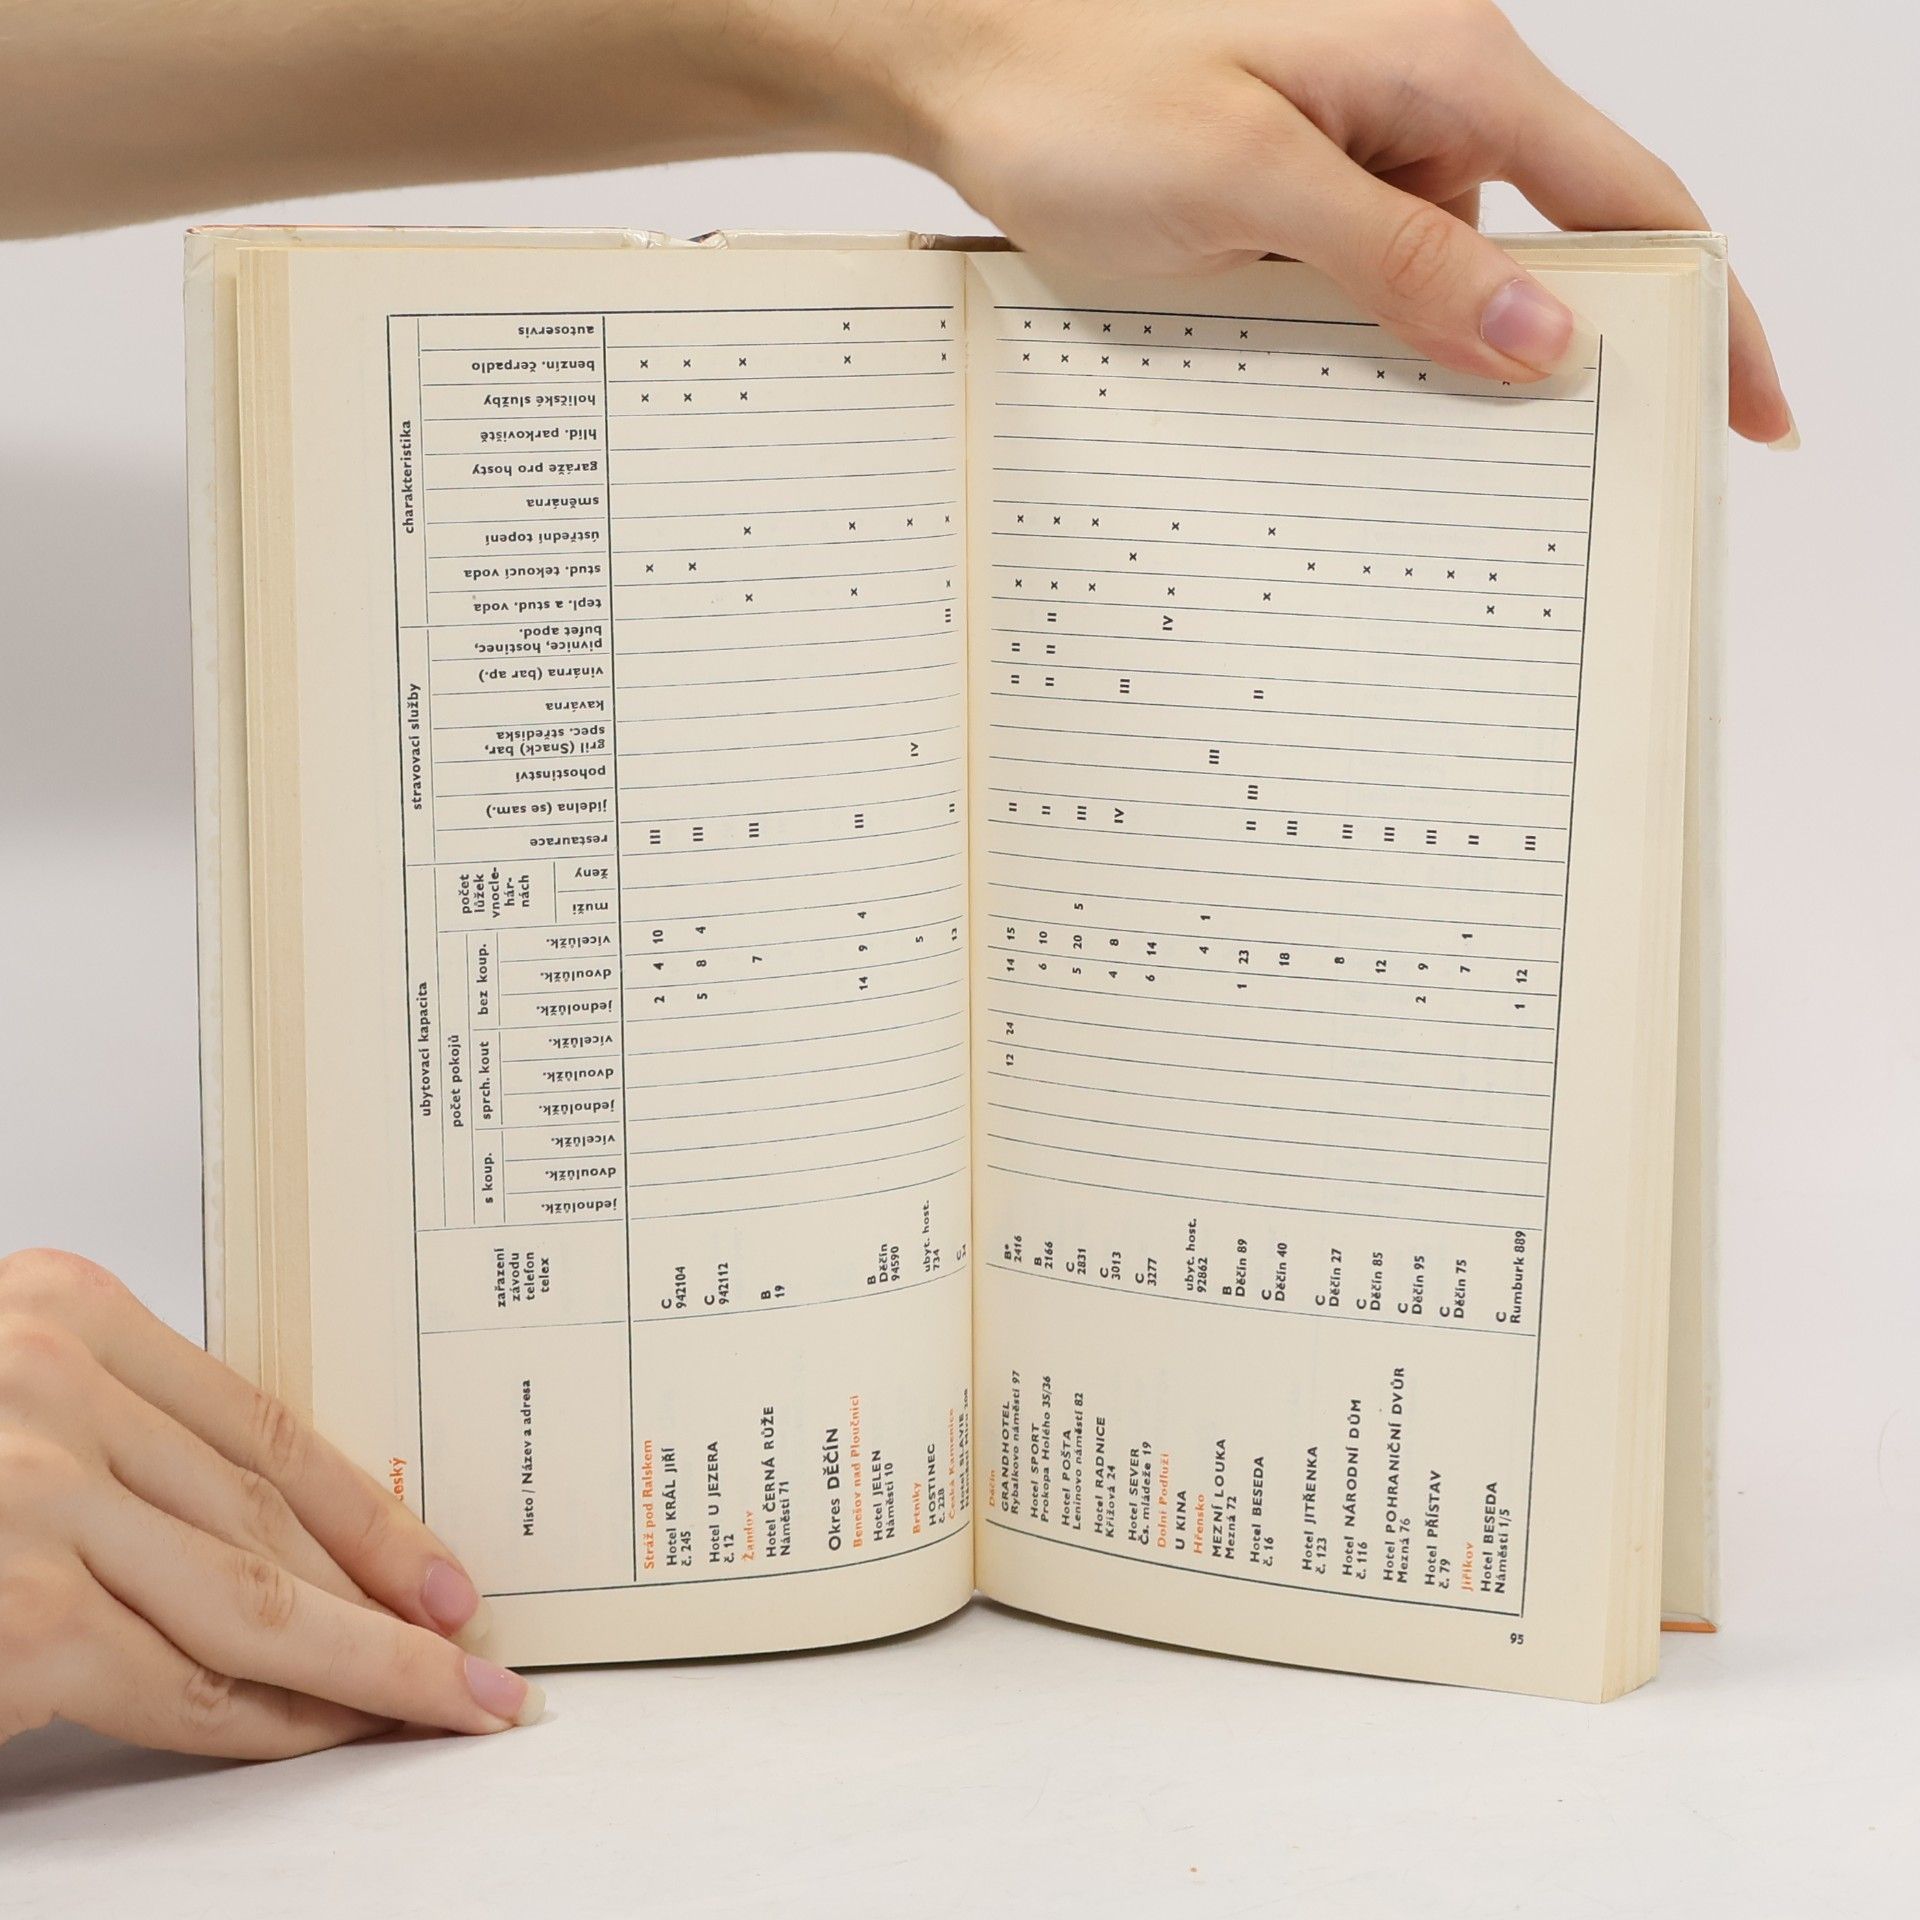 český
Místo / Název a adresa
zařazení
závodu
telefon
telex
ubytovací kapacita
počet pokojů
s koup.
jednolůžk.
dvoulůžk.
vícelůžk.
sprch. kout
jednolůžk.
dvoulůžk.
vícelůžk.
bez koup.
jednolůžk.
dvoulůžk.
vícelůžk.
počet
lůžek
vnocle-
hár-
nách
muži
ženy
stravovací služby
restaurace
jídelna (se sam.)
pohostinství
gril (Snack) bar,
spec. střediska
kavárna
vinárna (bar ap.)
pivnice, hostinec,
bufet apod.
charakteristika
tepl. a stud. voda
stud. tekoucí voda
ústřední topení
směnárna
garáže pro hosty
hlíd. parkoviště
holičské služby
benzin. čerpadlo
autoservis
Stráž pod Ralskem
Hotel KRÁL JIŘÍ C 2 4 10 III x x x
č. 245 942104
Hotel U JEZERA C 5 8 4 III x x x
č. 12 942112
Žandov
Hotel ČERNÁ RŮŽE B 7 III x x x x
Náměstí 71 19
Okres DĚČÍN
Benešov nad Ploučnicí
Hotel JELEN B 14 9 4 III x x x x
Náměstí 10 Děčín
94590
Brtníky
HOSTINEC ubyt. host. 5 IV x
č. 228 734
Česká Kamenice
Hotel SLAVIE C 13 II III x x x x
Děčín
GRANDHOTEL B* 12 24 14 15 II II II x x x x
Rybalkovo náměstí 97 2416
Hotel SPORT B 6 10 II II II II x x x x
Prokopa Holého 35/36 2166
Hotel POŠTA C 5 20 5 III x x x x x
Leninovo náměstí 82 2831
Hotel RADNICE C 4 8 IV III x x x
Křížová 24 3013
Hotel SEVER C 6 14 IV x x x x
Čs. mládeže 19 3277
Dolní Podluží
U KINA ubyt. host. 4 1 III
92862
Hřensko
MEZNÍ LOUKA B 1 23 II III II x x x x
Mezná 72 Děčín 89
Hotel BESEDA C 18 III
č. 16 Děčín 40
Hotel JITŘENKA C 8 III x x
č. 123 Děčín 27
Hotel NÁRODNÍ DŮM C 12 III x x
č. 116 Děčín 85
Hotel POHRANIČNÍ DVŮR C 2 9 III x x
Mezná 76 Děčín 95
Hotel PŘÍSTAV C 7 1 II x
č. 79 Děčín 75
Jiříkov
Hotel BESEDA C 1 12 III x x
Náměstí 1/5 Rumburk 889
95